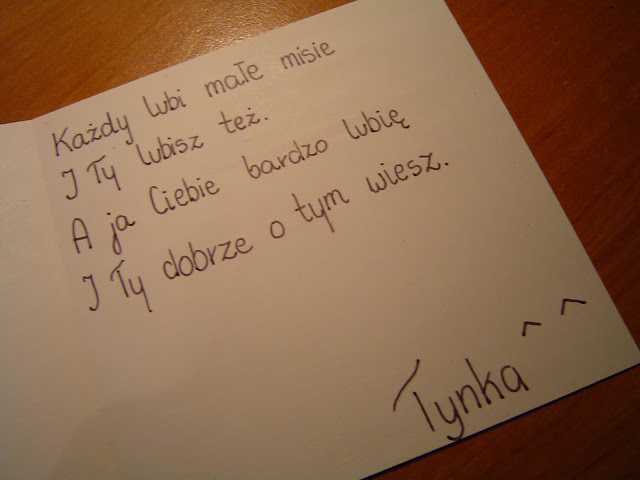 Każdy lubi małe misie
I Ty lubisz też.
A ja Ciebie bardzo lubię
I Ty dobrze o tym wiesz.
Tynka ^ ^